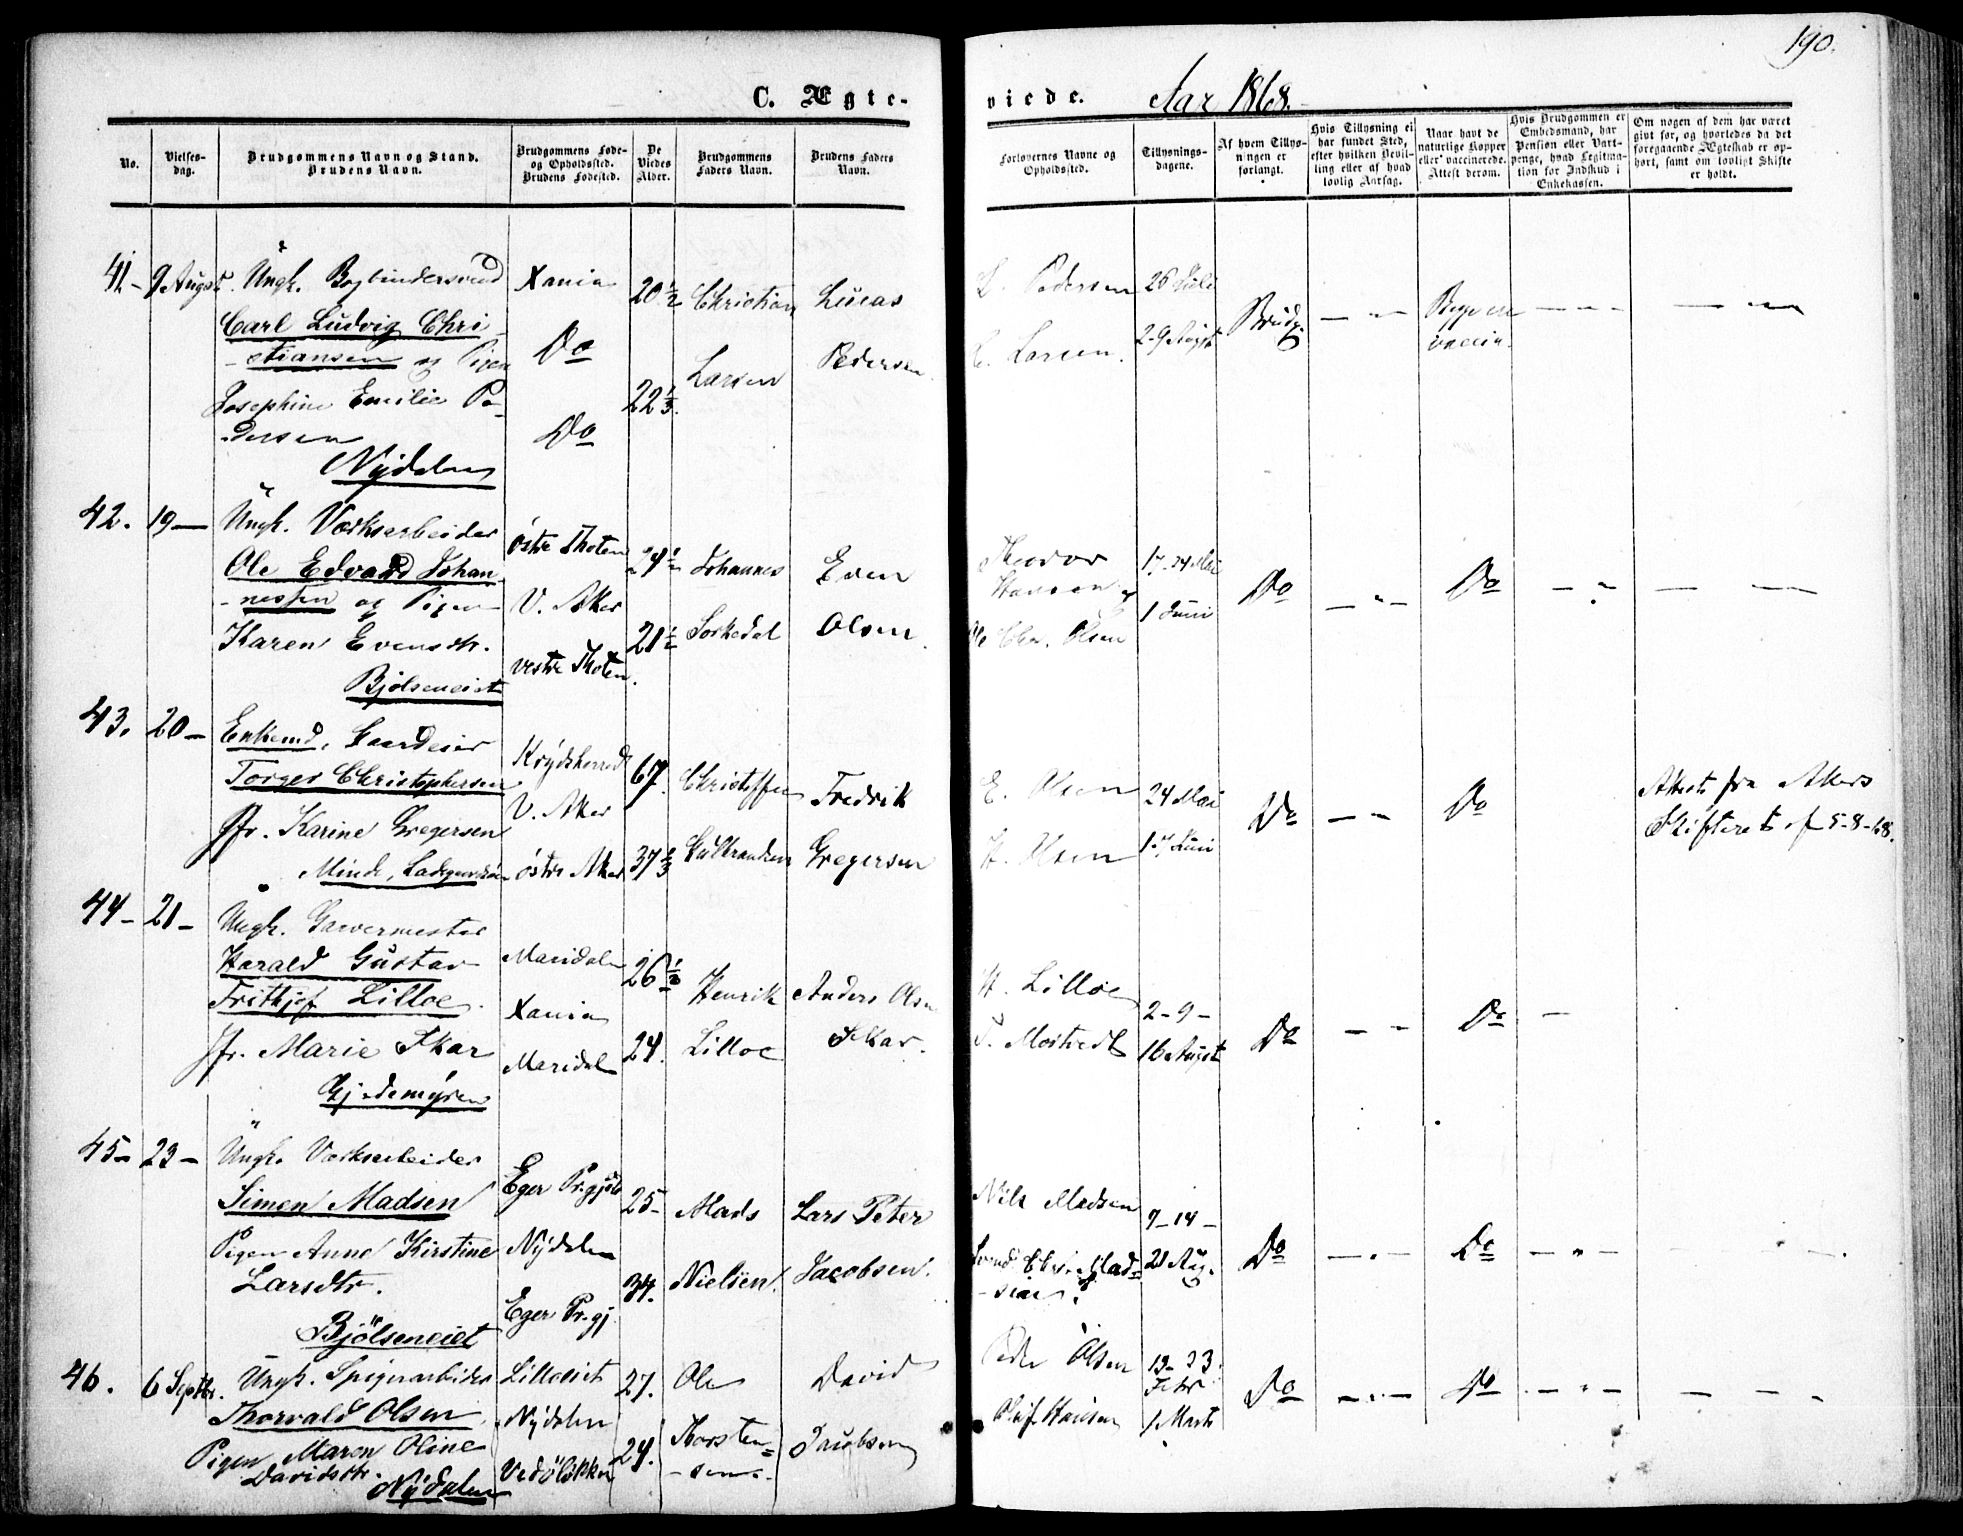 190.
C. Ægte-
viede. Aar 1868.
No.
Vielses-
dag.
Brudgommens Navn og Stand.
Brudens Navn.
Brudgommens Føde-
og Opholdssted.
Brudens Fødested.
De
Viedes
Alder.
Brudgommens
Faders Navn.
Brudens Faders
Navn.
Forlovernes Navne og
Opholdssted.
Tillysnings-
dagene.
Af hvem Tillys-
ningen er
forlangt.
Hvis Tillysning ei
har fundet Sted,
efter hvilken Bevil-
ling eller af hvad
lovlig Aarsag.
Naar havt de
naturlige Kopper
eller vaccinerede.
Attest derom.
Hvis Brudgommen er
Embedsmand, har
Pension eller Vart-
penge, hvad Legitima-
tion for Indskud i
Enkekassen.
Om nogen af dem har været
givt før, og hvorledes da det
foregaaende Ægteskab er op-
hørt, samt om lovligt Skifte
er holdt.
41 - 9 August. Ungk. Bogbindersvend
Carl Ludvig Chri-
-stiansen og Pigen
Josephine Emilie Pe-
-dersen
Nydalen
Xania
Do
Do
20½
22⅓
Christian
Larsen
Lucas
Pedersen
L. Pedersen
C. Larsen.
26 Juli
2-9 August
Brudg.
Begge ere
vaccin.
42. 19 - Ungk. Værksarbeider
Ole Edvard Johan-
-nessen og Pigen
Karen Evensdt.
Bjølseneiet
östre Thoten
V. Aker
vestre Thoten.
24½
21½
Johannes
Sorkedal
Even
Olsen
Theodor
Hansen og
Ole Chr. Olsen
17-24 Mai
1 Juni
Do
Do
43. 20 - Enkemd. Gaardeier
Torger Christophersen
Jfr. Karine Gregersen
Minde, Ladegaardsöen
Krydsherred
V. Aker
östre Aker
67.
37⅔
Christoffer
Gulbrandsen
Fredrik
Gregersen
E. Olsen
H. Olsen
24 Mai
1-7 Juni
Do
Do
Attest fra Akers
Skifteret af 5-8-68.
44 - 21 - Ungk. Garvermester
Harald Gustav
Frithjof Lilloe.
Jfr. Marie Skar
Gjedemyren
Maridalen
Xania
Maridal
26½
24.
Henrik
Lilloe
Anders Olsen
Skar.
H. Lilloe
2-9-
16 August
Do
Do
45 - 23 - Ungk. Værksarbeider
Simen Madsen
Pigen Anne Kirstine
Larsdtr.
Bjölseneiet
Eger Pr.gjeld
Nydalen
Eger Pr.gj.
25-
34.
Mads
Nielsen.
Lars Peter
Jacobsen.
Nils Madsen
7-14-
21 Aug.
Do
Do
46. 6 Septbr. Ungk. Spigerarbeider
Thorvald Olsen
Pigen Maren Oline
Davidsdtr.
Nydalen
Lilloeiet
Nydalen
Vedölökken
27.
24.
Ole
Thorsten=
-sen.
David
Jacobsen
Peder Olsen
Oluf Hansen
13-23
Febr
1 Marts
Do
Do